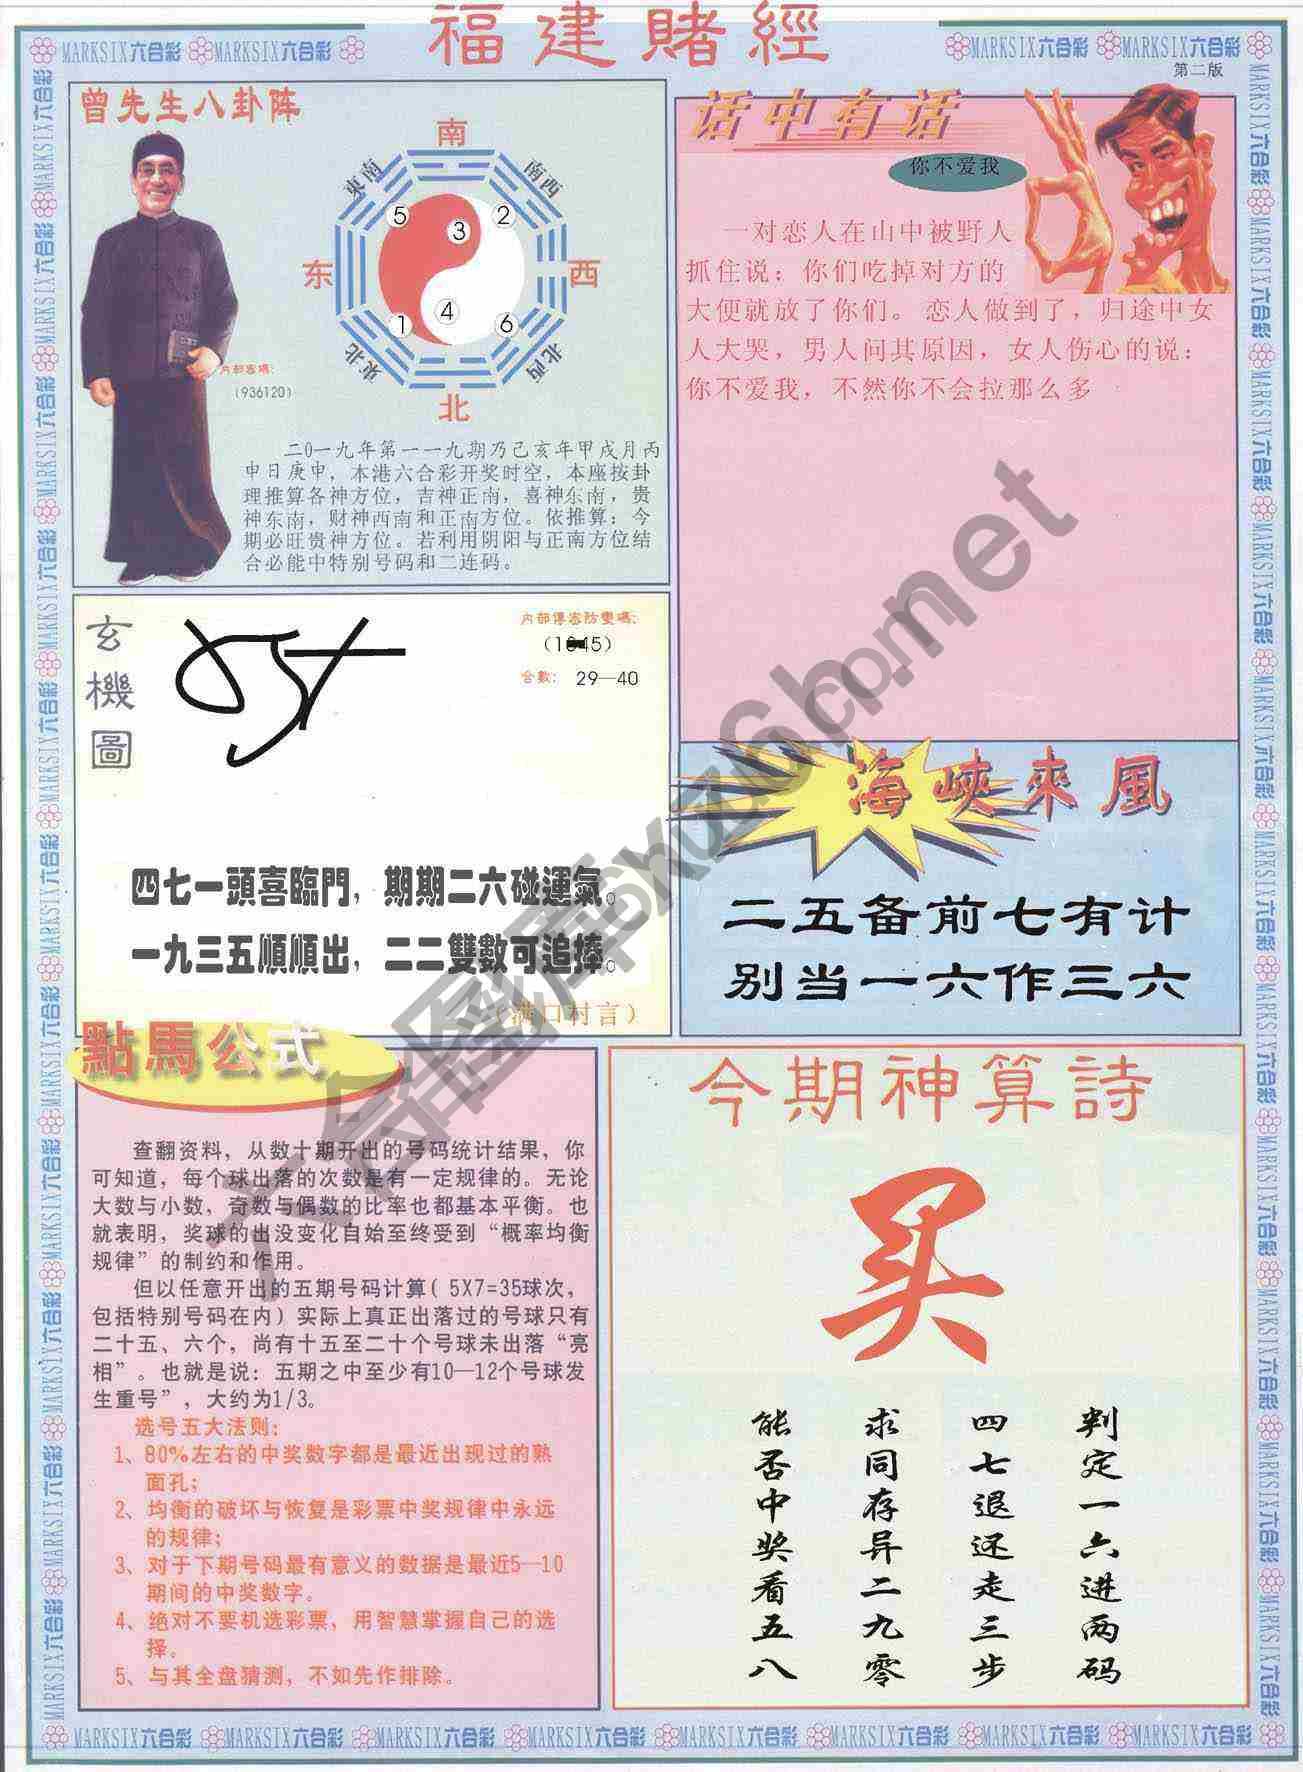 福建賭經
MARKSIX六合彩 MARKSIX六合彩
MARKSIX六合彩 MARKSIX六合彩
第二版
曾先生八卦阵
南
東南
南西
5
3
2
东
西
4
1
6
東北
北西
北
内部密碼：
（936120）
二0一九年第一一九期乃己亥年甲戌月丙
申日庚申，本港六合彩开奖时空，本座按卦
理推算各神方位，吉神正南，喜神东南，贵
神东南，财神西南和正南方位。依推算：今
期必旺贵神方位。若利用阴阳与正南方位结
合必能中特别号码和二连码。
话中有话
你不爱我
一对恋人在山中被野人
抓住说：你们吃掉对方的
大便就放了你们。恋人做到了，归途中女
人大哭，男人问其原因，女人伤心的说：
你不爱我，不然你不会拉那么多
玄機圖
内部傳密防變碼：
合數： 29—40
四七一頭喜臨門，期期二六碰運氣。
一九三五順順出，二二雙數可追捧。
（满口村言）
海峽來風
二五备前七有计
别当一六作三六
點馬公式
查翻资料，从数十期开出的号码统计结果，你
可知道，每个球出落的次数是有一定规律的。无论
大数与小数，奇数与偶数的比率也都基本平衡。也
就表明，奖球的出没变化自始至终受到“概率均衡
规律”的制约和作用。
但以任意开出的五期号码计算（5X7=35球次，
包括特别号码在内）实际上真正出落过的号球只有
二十五、六个，尚有十五至二十个号球未出落“亮
相”。也就是说：五期之中至少有10—12个号球发
生重号”，大约为1/3。
选号五大法则：
1、80%左右的中奖数字都是最近出现过的熟
面孔；
2、均衡的破坏与恢复是彩票中奖规律中永远
的规律；
3、对于下期号码最有意义的数据是最近5—10
期间的中奖数字。
4、绝对不要机选彩票，用智慧掌握自己的选
择。
5、与其全盘猜测，不如先作排除。
今期神算詩
买
判定一六进两码
四七退还走三步
求同存异二九零
能否中奖看五八
MARKSIX六合彩 MARKSIX六合彩 MARKSIX六合彩 MARKSIX六合彩 MARKSIX六合彩 MARKSIX六合彩 MARKSIX六合彩 MARKSIX六合彩